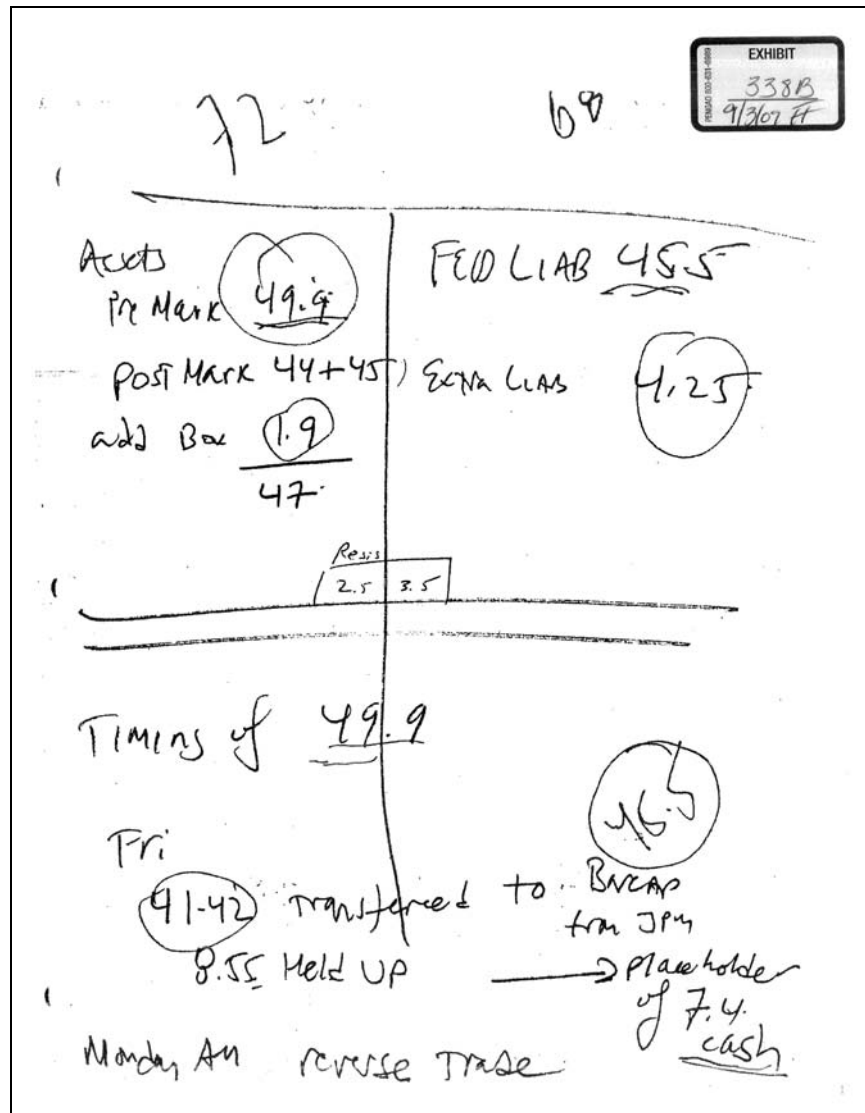 EXHIBIT
338B
9/3/07
PENGAD 800-631-6989
72
Assets
Pre Mark 49.9
Post Mark 44+45)
add Box 1.9
47
FED LIAB 45.5
Extra LIAB 4.25
Resis
2.5 3.5
Timing of 49.9
Fri
41-42 Transferred to
from JPM
8.55 Held UP → Placeholder
of 7.4.
cash
Monday AM reverse Trade